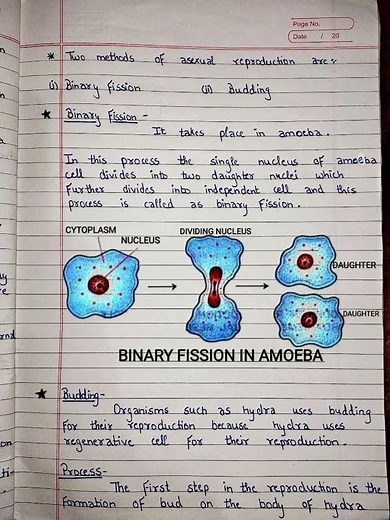 Page No.
Date / 20
* Two methods of asexual reproduction are :
(i) Binary Fission (ii) Budding
★ Binary Fission -
It takes place in amoeba.
In this process the single nucleus of amoeba
cell divides into two daughter nuclei which
further divides into independent cell and this
process is called as binary fission.
CYTOPLASM
NUCLEUS
DIVIDING NUCLEUS
DAUGHTER
DAUGHTER
BINARY FISSION IN AMOEBA
★ Budding -
Organisms such as hydra uses budding
for their reproduction because hydra uses
regenerative cell for their reproduction.
Process -
The first step in the reproduction is the
formation of bud on the body of hydra